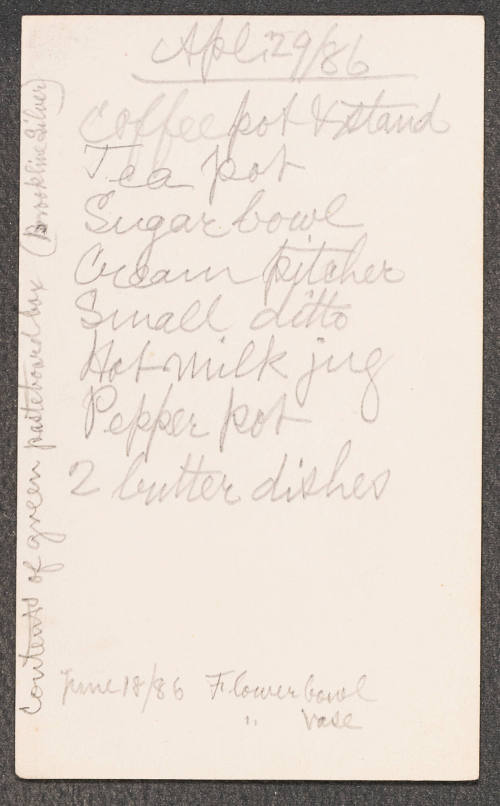 Apl. 29/86
Coffee pot & stand
Tea pot
Sugar bowl
Cream pitcher
Small ditto
Hot milk jug
Pepper pot
2 butter dishes
June 18/86 Flower bowl
" vase
Contents of green pasteboard box (Brookline Silver)